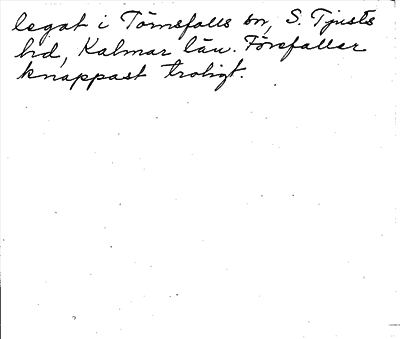 legat i Törnsfalls sn, S. Tjusts
hd, Kalmar län. Förefaller
knappast troligt.